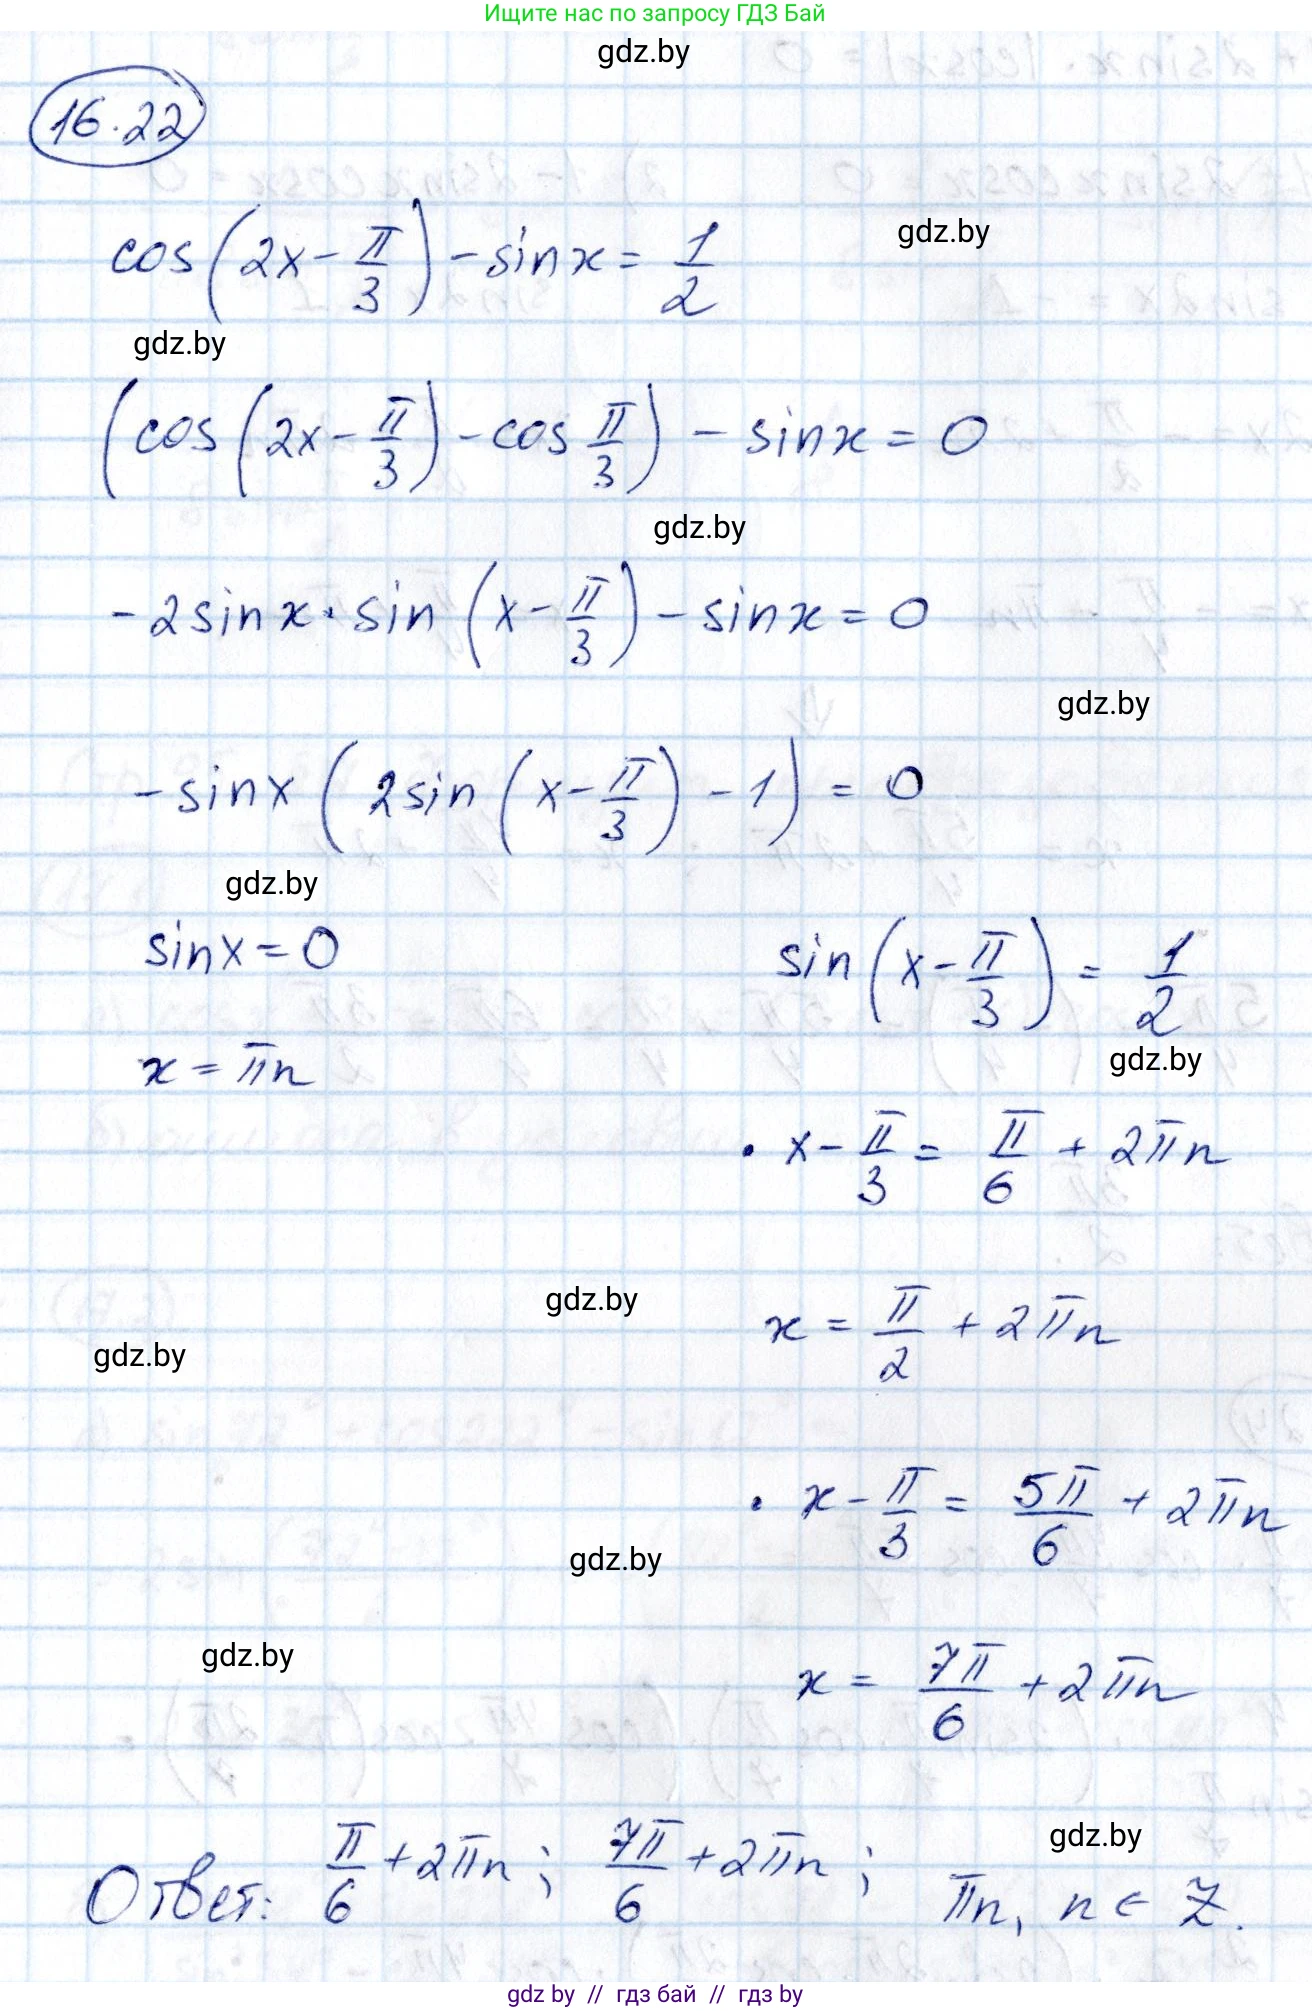 Ищите нас по запросу ГДЗ Бай
gdz.by
16.22
cos(2x - π/3) - sin x = 1/2
gdz.by
gdz.by
(cos(2x - π/3) - cos π/3) - sin x = 0
gdz.by
-2 sin x · sin(x - π/3) - sin x = 0
gdz.by
- sin x (2 sin(x - π/3) - 1) = 0
gdz.by
sin x = 0
sin(x - π/3) = 1/2
gdz.by
x = πn
• x - π/3 = π/6 + 2πn
gdz.by
gdz.by
x = π/2 + 2πn
• x - π/3 = 5π/6 + 2πn
gdz.by
gdz.by
x = 7π/6 + 2πn
gdz.by
Ответ: π/6 + 2πn; 7π/6 + 2πn; πn, n ∈ Z.
gdz by // гдз бай // гдз by